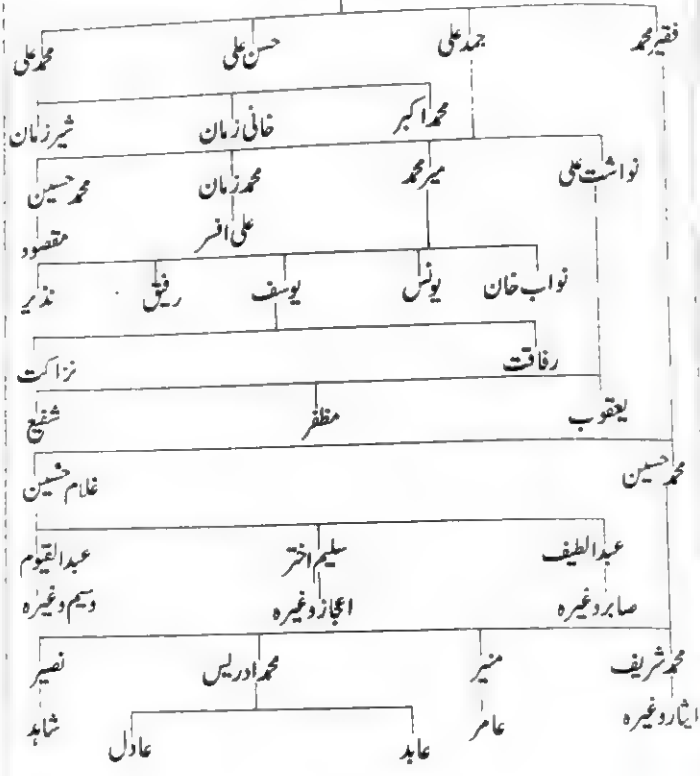 فقیر محمد جمد علی حسن علی محمد علی
محمد اکبر خانی زمان شیر زمان
نواشت علی میر محمد محمد زمان محمد حسین
علی افسر مقصود
نواب خان یونس یوسف رفیق نذیر
رفاقت نزاکت
یعقوب مظفر شفیع
محمد حسین غلام حسین
عبد الطیف سلیم اختر عبد القیوم
صابر وغیرہ اعجاز وغیرہ وسیم وغیرہ
محمد شریف منیر محمد ادریس نصیر
ایثار وغیرہ عامر شاہد
عابد عادل